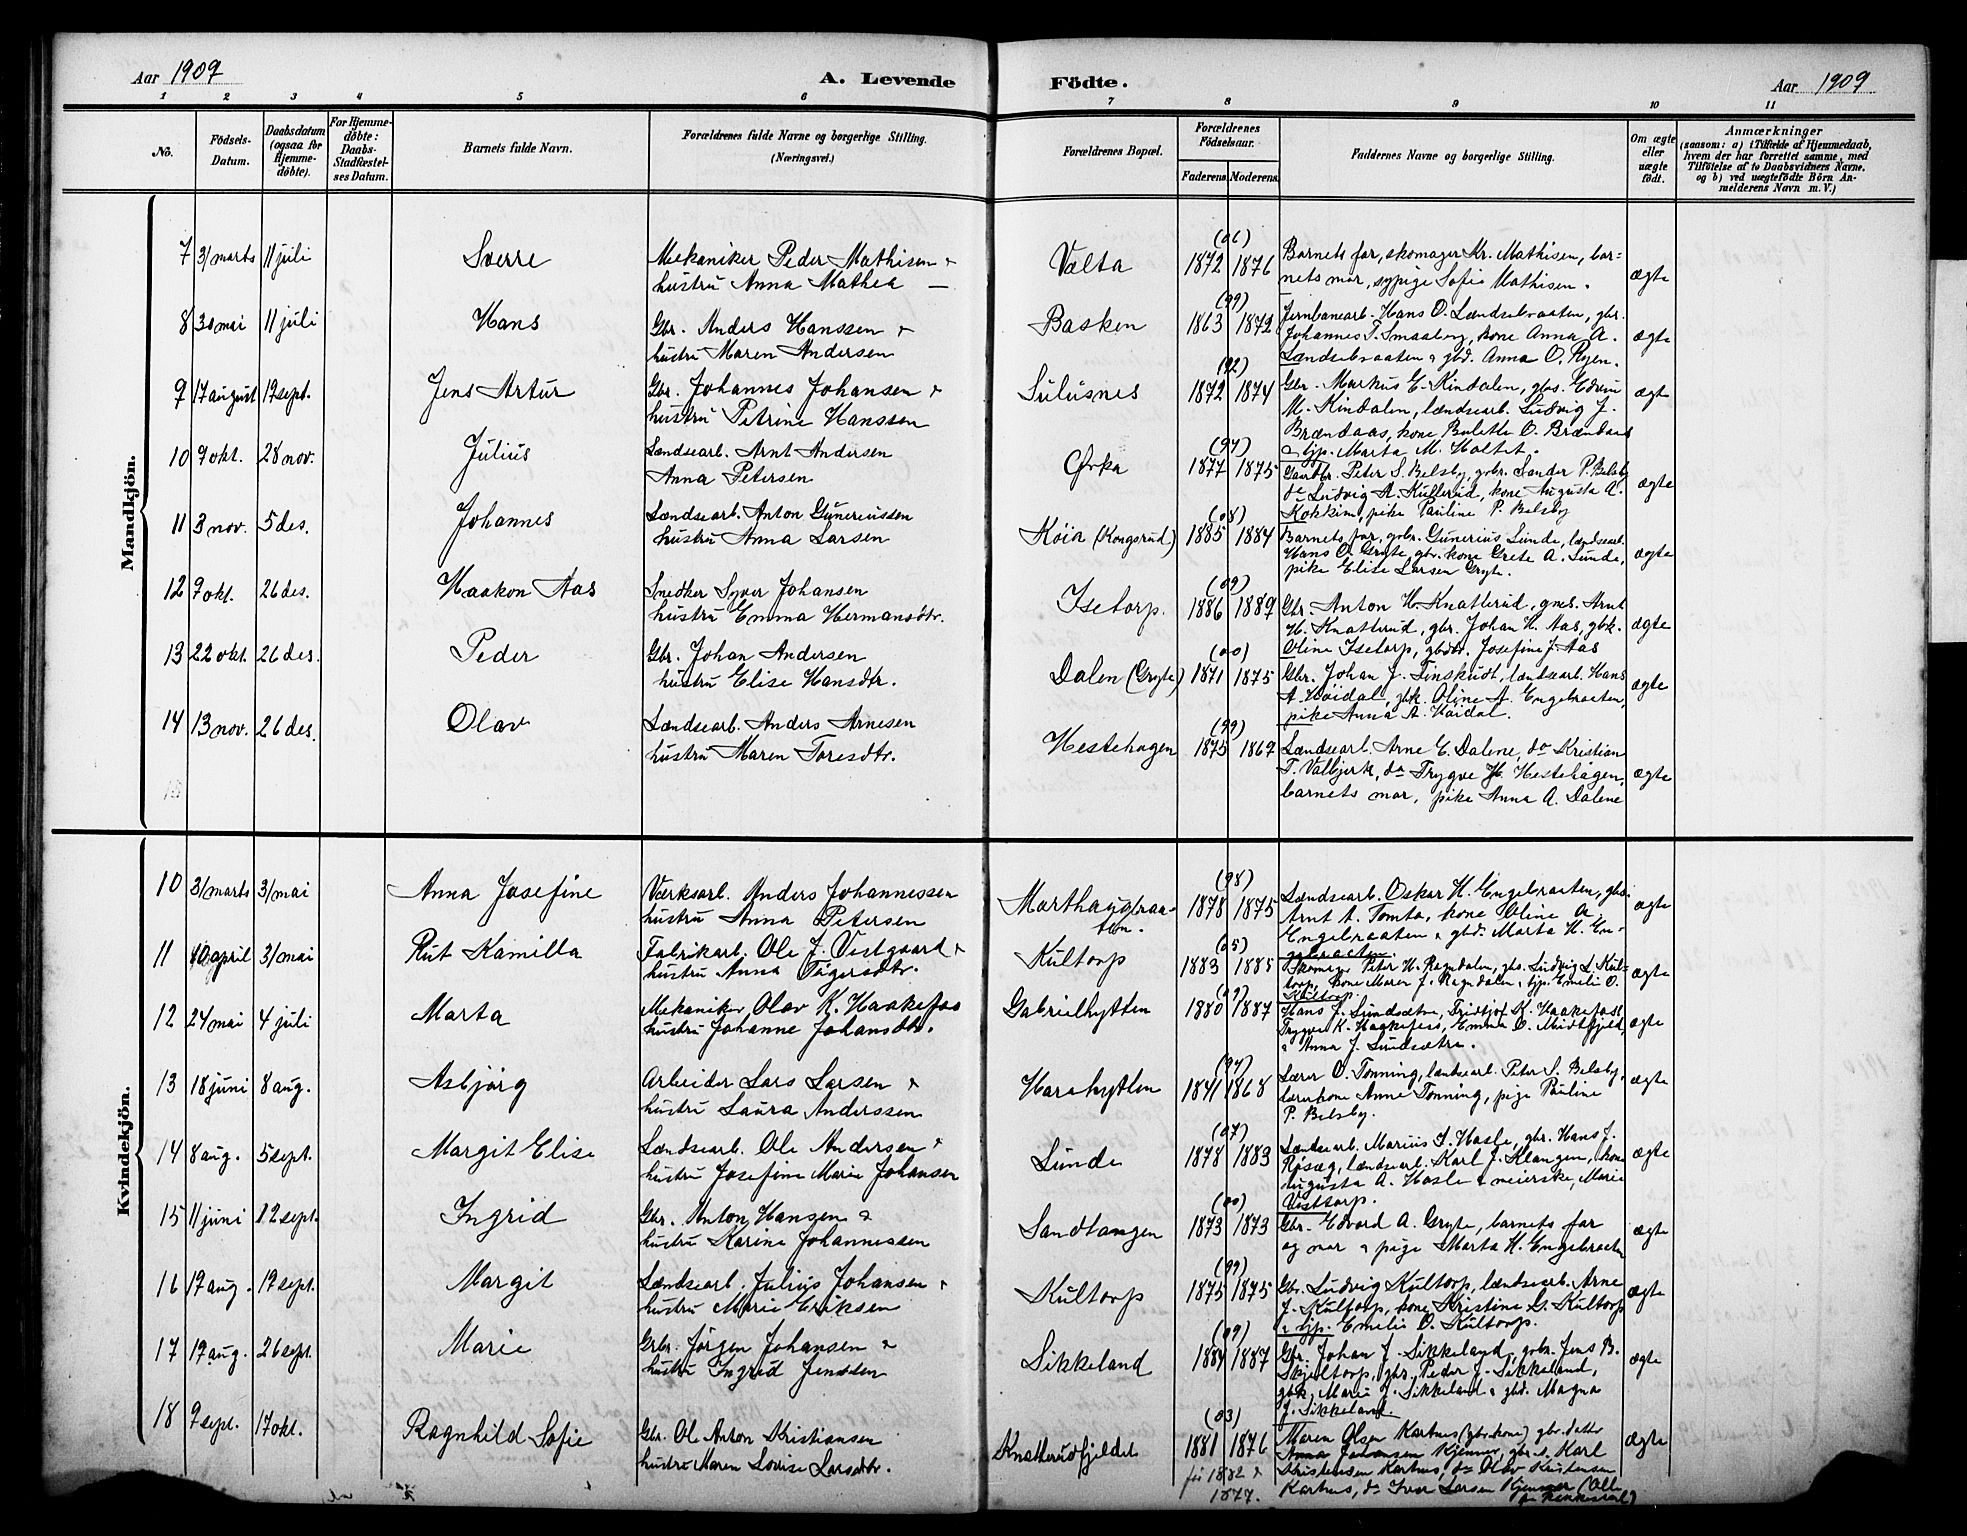 Aar 1909
A. Levende
Födte.
Aar 1909
1 2 3 4 5 6 7 8 9 10 11
No.
Födsels-Datum.
Daabsdatum (ogsaa for Hjemme-döbte).
For Hjemme-döbte: Daabs-Stadfæstel-ses Datum.
Barnets fulde Navn.
Forældrenes fulde Navne og borgerlige Stilling. (Næringsvei.)
Forældrenes Bopæl.
Forældrenes Födselsaar.
Faderens. Moderens.
Faddernes Navne og borgerlige Stilling.
Om ægte eller uægte födt.
Anmærkninger
(saasom: a) i Tilfælde af Hjemmedaab,
hvem der har forrettet samme, med
Tilföielse af to Daabsvidners Navne,
og b) ved uægtefödte Börn An-
melderens Navn m. V.)
Mandkjön.
7 31 marts 11 juli Sverre Mekaniker Peder Mathisen &
hustru Anna Mathea —
Vælta (06) 1872 1876 Barnets far, skomager Kr. Mathisen, bar=
nets mor, sypige Sofie Mathisen. ægte
8 30 mai 11 juli Hans Gbr. Anders Hanssen &
hustru Maren Andersen
Basken (99) 1863 1872 Jernbanearb. Hans O. Lændsebraaten, gbr.
Johannes T. Smaaberg, kone Anna A.
Lændsebraaten & gbd. Anna O. Ryen. ægte
9 17 august 19 sept. Jens Artur Gbr. Johannes Johansen &
hustru Petrine Hanssen
Sulusnes (92) 1872 1874 Gbr. Markus E. Kindalen, gbs. Edvin
M. Kindalen, lændsearb. Ludvig J.
Brændaas, kone Bolette O. Brændaas
& tjp. Marta M. Holtet. ægt
10 9 okt. 28 nov. Julius Lændsearb. Arnt Andersen
Anna Petersen
Örka (97) 1877 1875 Gaardbr. Peter S. Belsby, gbr. Sander P. Belsby
do Ludvig A. Kullerud, kone Augusta A.
Kokkim, pike Pauline P. Belsby ægte
11 3 nov. 5 des. Johannes Lændsearb. Anton Gunerussen
hustru Anna Larsen
Köia (Kongsrud) (08) 1885 1884 Barnets far, gbr. Gunerius Lunde, lændsearb.
Hans O. Gryte, gbr. kone Grete A. Lunde,
pike Elise Larsen Gryte. ægte
12 9 okt. 26 des. Haakon Aas Snedker Syver Johansen
hustru Emma Hermansdtr.
Isetorp. (09) 1886 1889 Gbr. Anton H. Knatterud, gnes. Arnt
H. Knatterud, gbr. Johan H. Aas, gbk.
Oline Isetorp, gbdtr. Josefine J. Aas ægte
13 22 okt. 26 des. Peder Gbr. Johan Andersen
hustru Elise Hansdtr.
Dalen (Gryte) (00) 1871 1875 Gbr. Johan J. Finskudt, lændsearb. Hans
A. Höidal, gbk. Oline A. Engebraaten,
pike Anna A. Höidal. ægte
14 13 nov. 26 des. Olav Lændsearb. Anders Arnesen
hustru Maren Toresdtr.
Hestehagen (99) 1875 1869 Lændsearb. Arne E. Dalene, do Kristian
T. Valbjerk, do Trygve H. Hestehagen,
barnets mor, pike Anna A. Dalene ægte
Kvindekjön.
10 31 marts 31 mai Anna Josefine Værksarb. Anders Johannessen
hustru Anna Petersen
Marthaugbraa-
ten. (98) 1878 1875 Lændsearb. Oskar H. Engebraaten, gbs.
Arnt A. Tomta, kone Oline A.
Engebraaten & gbd. Marta H. En-
gebraaten. ægte
11 10 april 31 mai Rut Kamilla Fabrikarb. Ole J. Vestgaard &
hustru Anna Tögersdtr.
Kultorp (05) 1883 1885 Skomager Peter H. Ragndalen, gbs. Ludvig L. Kul-
torp, kone Maren J. Ragndalen & tjp. Emelie O.
Kultorp. ægte
12 24 mai 4 juli Marta Mekaniker Olav K. Haakefos
hustru Johanne Johansdtr.
Gabrielhytten 1880 1887 Hans J. Sundsætre, Fridtjof K. Haakefoss
Trygve K. Haakefoss, Emma O. Midtfjeld
& Anna J. Sundsætre. ægte
13 18 juni 8 aug. Asbjörg Arbeider Lars Larsen &
hustru Laura Anderssen
Harahytten (94) 1841 1868 Lærer O. Tönning, lændsearb. Peter S. Belsby,
lærerkone Anne Tönning, pige Pauline
P. Belsby. ægte
14 8 aug. 5 sept. Margit Elise Lændsearb. Ole Andersen &
hustru Josefine Marie Johansen
Lunde (07) 1878 1883 Lændsearb. Marius S. Hasle, gbr. Hans J.
Röisæg, lændsearb. Karl J. Klangen, kone
Augusta A. Hasle & meierske, Marie
Visttorp. ægte
15 11 juni 12 sept. Ingrid Gbr. Anton Hansen &
hustru Karine Johannessen
Sandtangen (00) 1873 1873 Gbr. Edvard A. Gryte, barnets far
og mor & pige Marta H. Engebraaten ægte
16 17 aug. 19 sept. Margit Lændsearb. Julius Johansen &
hustru Marie Eriksen
Kultorp (99) 1875 1875 Gbr. Ludvig Kultorp, lændsearb. Arne
J. Kultorp, kone Kristine L. Kultorp
& tjp. Emelie O. Kultorp. ægte
17 19 aug. 26 sept. Marie Gbr. Jörgen Johansen &
hustru Ingrid Jenssen
Sikkeland (09) 1884 1887 Gbr. Johan J. Sikkeland, gbr. Jens B.
Skjeltorp, gbr. Peder J. Sikkeland,
gbk. Marie J. Sikkeland & gbd. Magna
J. Sikkeland. ægte
18 9 sept. 17 okt. Ragnhild Sofie Gbr. Ole Anton Kristiansen
hustru Maren Lovise Larsdtr.
Knatterudfjeldet (03) 1881 1876 Maren Olsen Karthus (gbr. kone) gbr. datter
Anna Johansen Kjenner, gbr. s. Karl
Kristensen Karthus, do Olav Kristensen
Karthus, do Iver Larsen Kjenner (Alle
ægte
1882 &
1877.